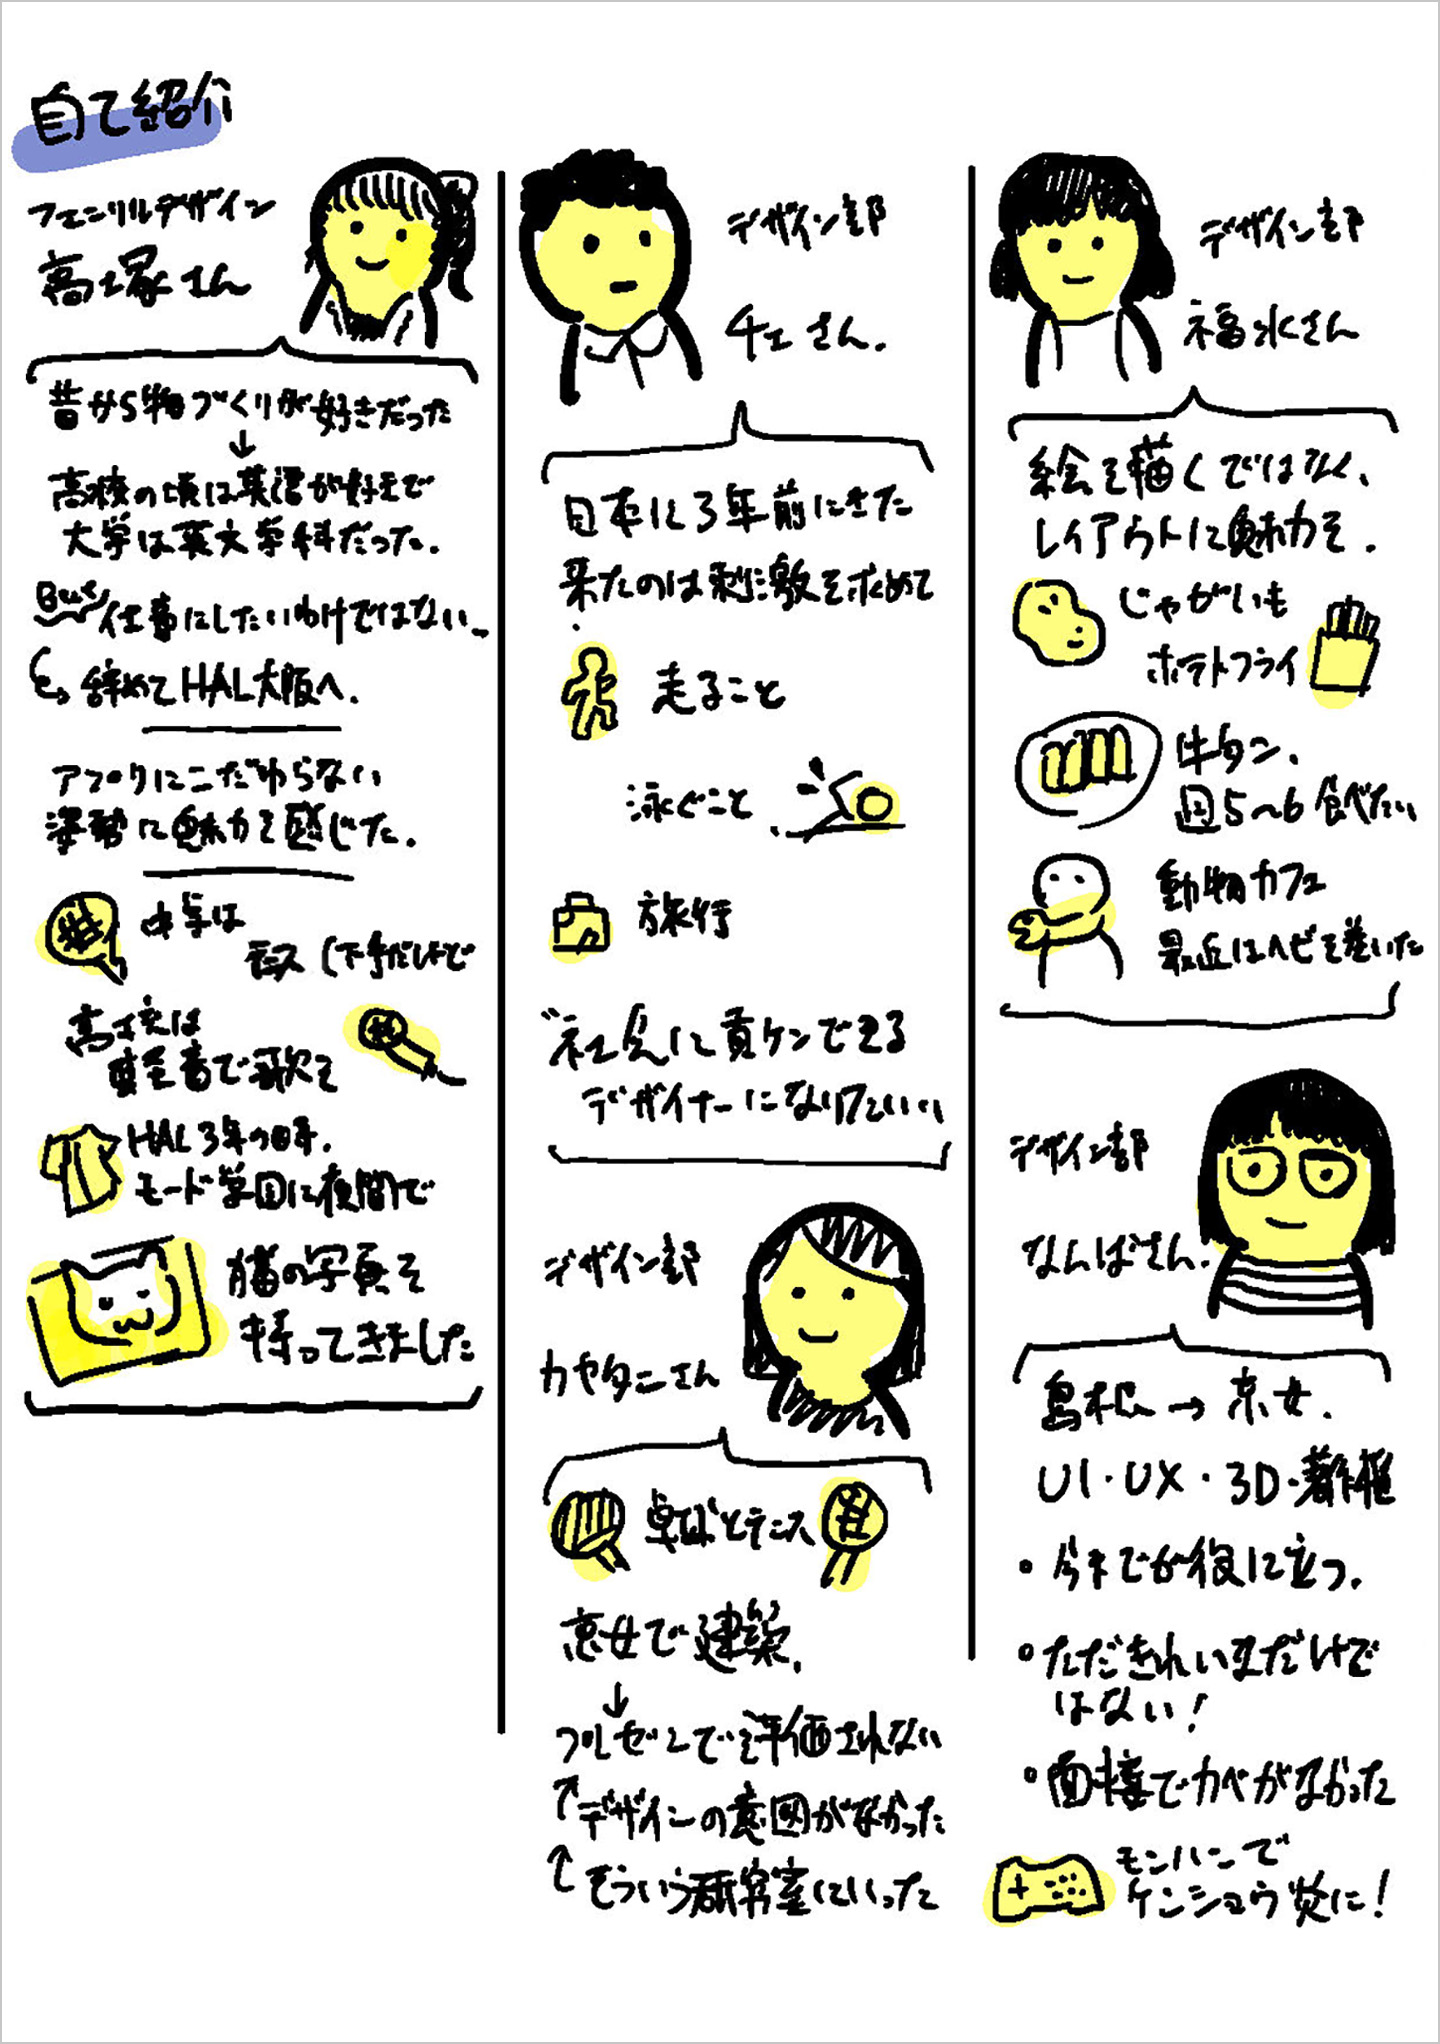 自て紹介
フェンリルデザイン
高塚さん
昔から物づくりが好きだった
↓
高校の頃は英語が好きで
大学は英文学科だった.
But 仕事にしたいわけではない…
辞めてHAL大阪へ.
アフ
にこだわらない
姿勢に魅力を感じた.
中学は
テニス (下手だけど
高校は
軽音で歌を
HAL3年の時.
モード学園に夜間で
猫の写真を
持ってきました
デザイン部
チェさん.
日本に3年前にきた
来たのは刺激を求めて
走ること
泳ぐこと
旅行
社会に貢ケンできる
デザイナーになりたいい
デザイン部
カヤタニさん
卓球とテニス
京女で建築.
↓
プレゼンで評価されない
↑デザインの意図がなかった
↑そういう研究室にいった
デザイン部
福永さん
絵を描くではなく、
レイアウトに魅力を.
じゃがいも
ポテトフライ
牛タン、
週5~6食べたい
動物カフェ
最近はヘビを巻いた
デザイン部
なんばさん.
島根→京女.
UI・UX・3D・著作権
・今までが役に立つ.
・ただきれいまだけで
はない!
・面接でカベがなかった
モンハンで
ケンショウ炎に!